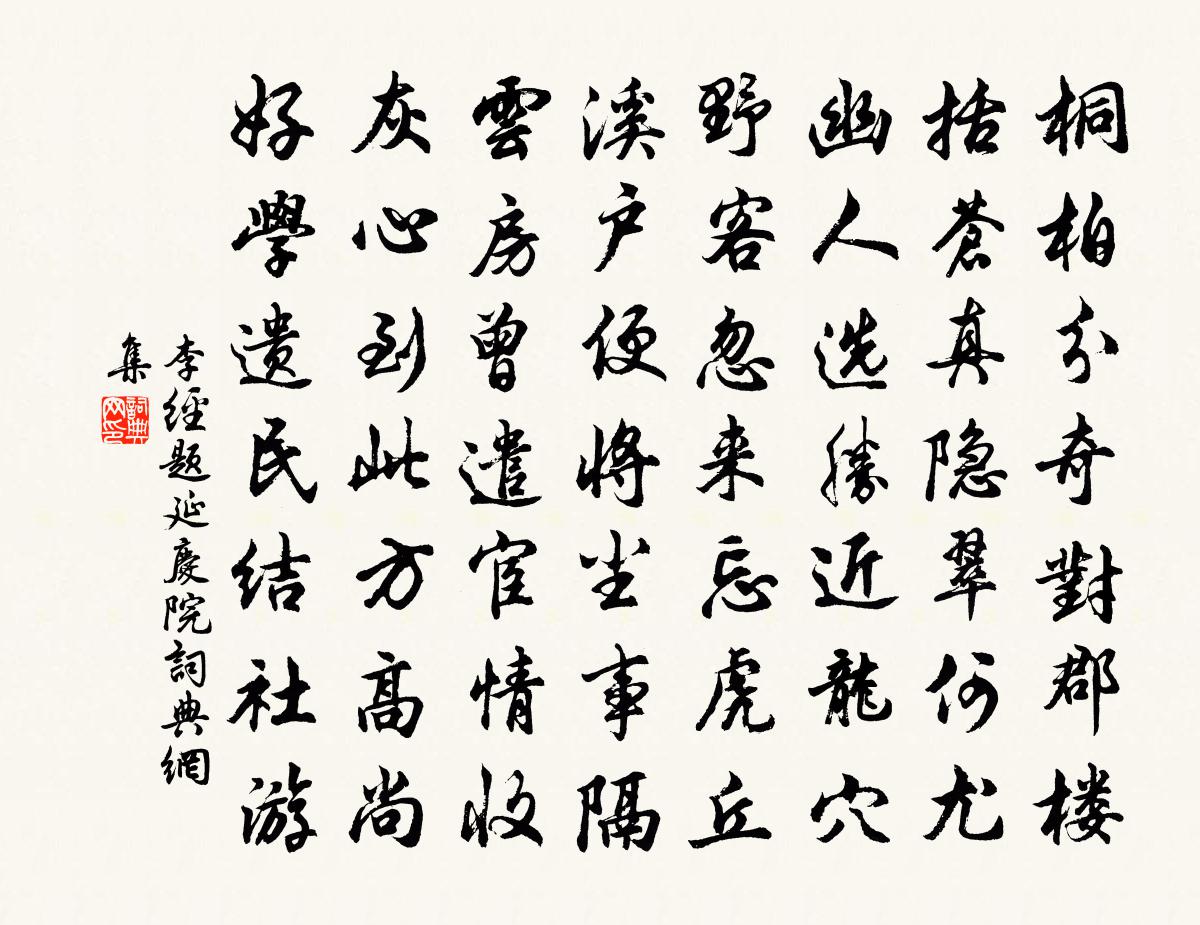 桐柏分奇對郡楼
括蒼真隐翠何尤
幽人选勝近龍穴
野客忽来忘虎丘
溪户便将尘事隔
雲房曾遣宦情收
灰心到此方高尚
好學遗民结社游
李經题延慶院詞典網
集
詞典
网印